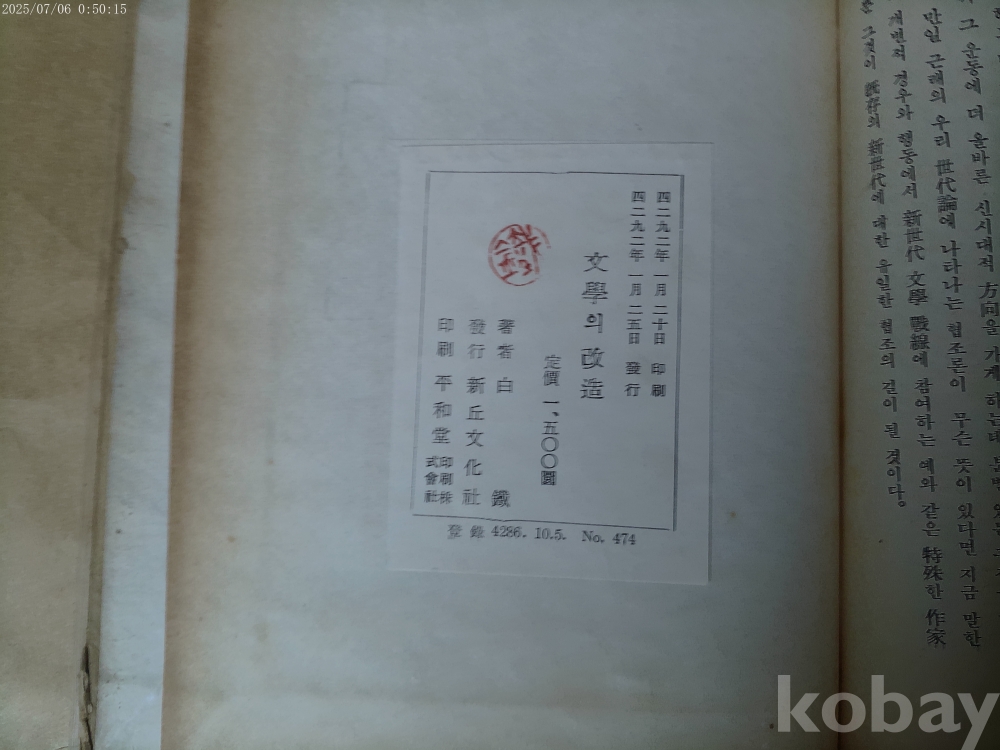 2025/07/06 0:50:15
만일 근래의 우리 世代論에 나타나는 협조론이 무슨 뜻이 있다면 지금 말한
개변적 경우와 행동에서 新世代 文學 戰線에 참여하는 예와 같은 特殊한 作家
그것이 旣存의 新世代에 대한 유일한 협조의 길이 될 것이다。
四二九二年 一月 二十日 印刷
四二九二年 一月 二五日 發行
文學의 改造
定價 一、五〇〇圜
著者 白鐵
發行 新丘文化社
印刷 平和堂印刷株式會社
登錄 4286. 10.5. No. 474
kobay